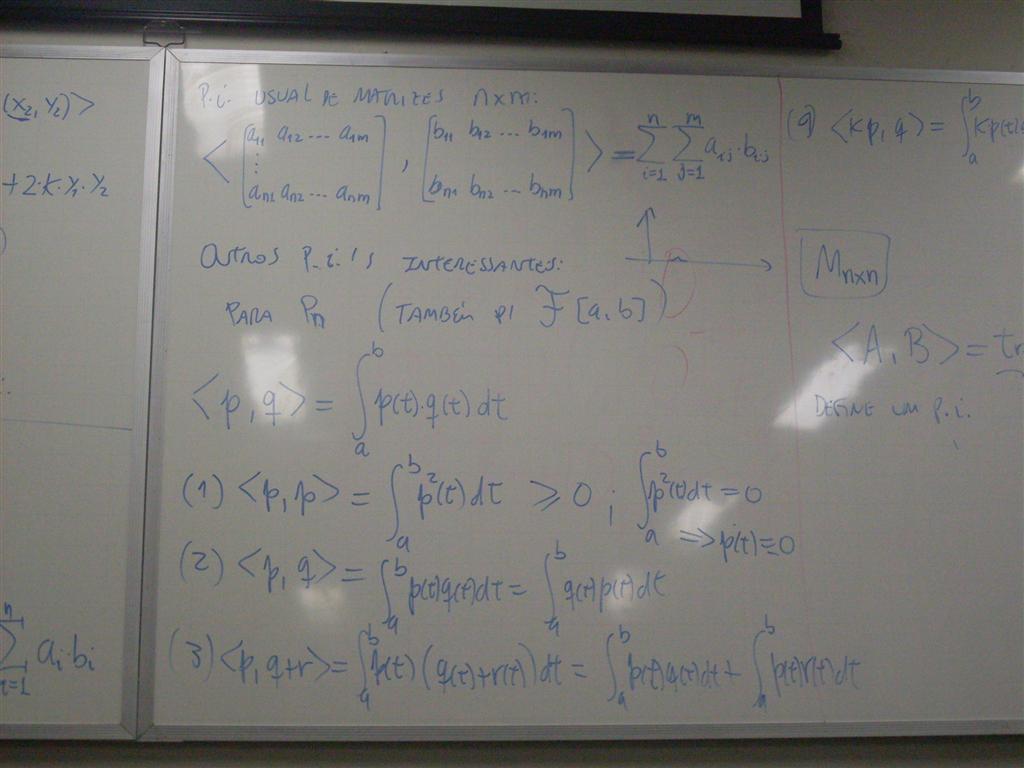 (x₂, y₂)>
+ 2·K·y₁·y₂
n
∑ aᵢ·bᵢ
i=1
P.i. USUAL DE MATRIZES n×m:
< [a₁₁ a₁₂ ... a₁ₘ ⋮ aₙ₁ aₙ₂ ... aₙₘ] , [b₁₁ b₁₂ ... b₁ₘ bₙ₁ bₙ₂ ... bₙₘ] > = ∑ᵢ₌₁ⁿ ∑ⱼ₌₁ᵐ aᵢⱼ·bᵢⱼ
OUTROS P.i.'s INTERESSANTES:
PARA Pₙ (TAMBÉM p/ F[a,b])
<p,q> = ∫ₐᵇ p(t)·q(t) dt
(1) <p,p> = ∫ₐᵇ p²(t) dt ≥ 0 ; ∫ₐᵇ p²(t)dt = 0
⇒ p(t)=0
(2) <p,q> = ∫ₐᵇ p(t)q(t)dt = ∫ₐᵇ q(t)p(t)dt
(3) <p,q+r> = ∫ₐᵇ p(t)(q(t)+r(t))dt = ∫ₐᵇ p(t)q(t)dt + ∫ₐᵇ p(t)r(t)dt
<Kp,q> = ∫ₐᵇ Kp(t)
Mₙₓₙ
<A,B> = tr
DEFINE UM P.i.